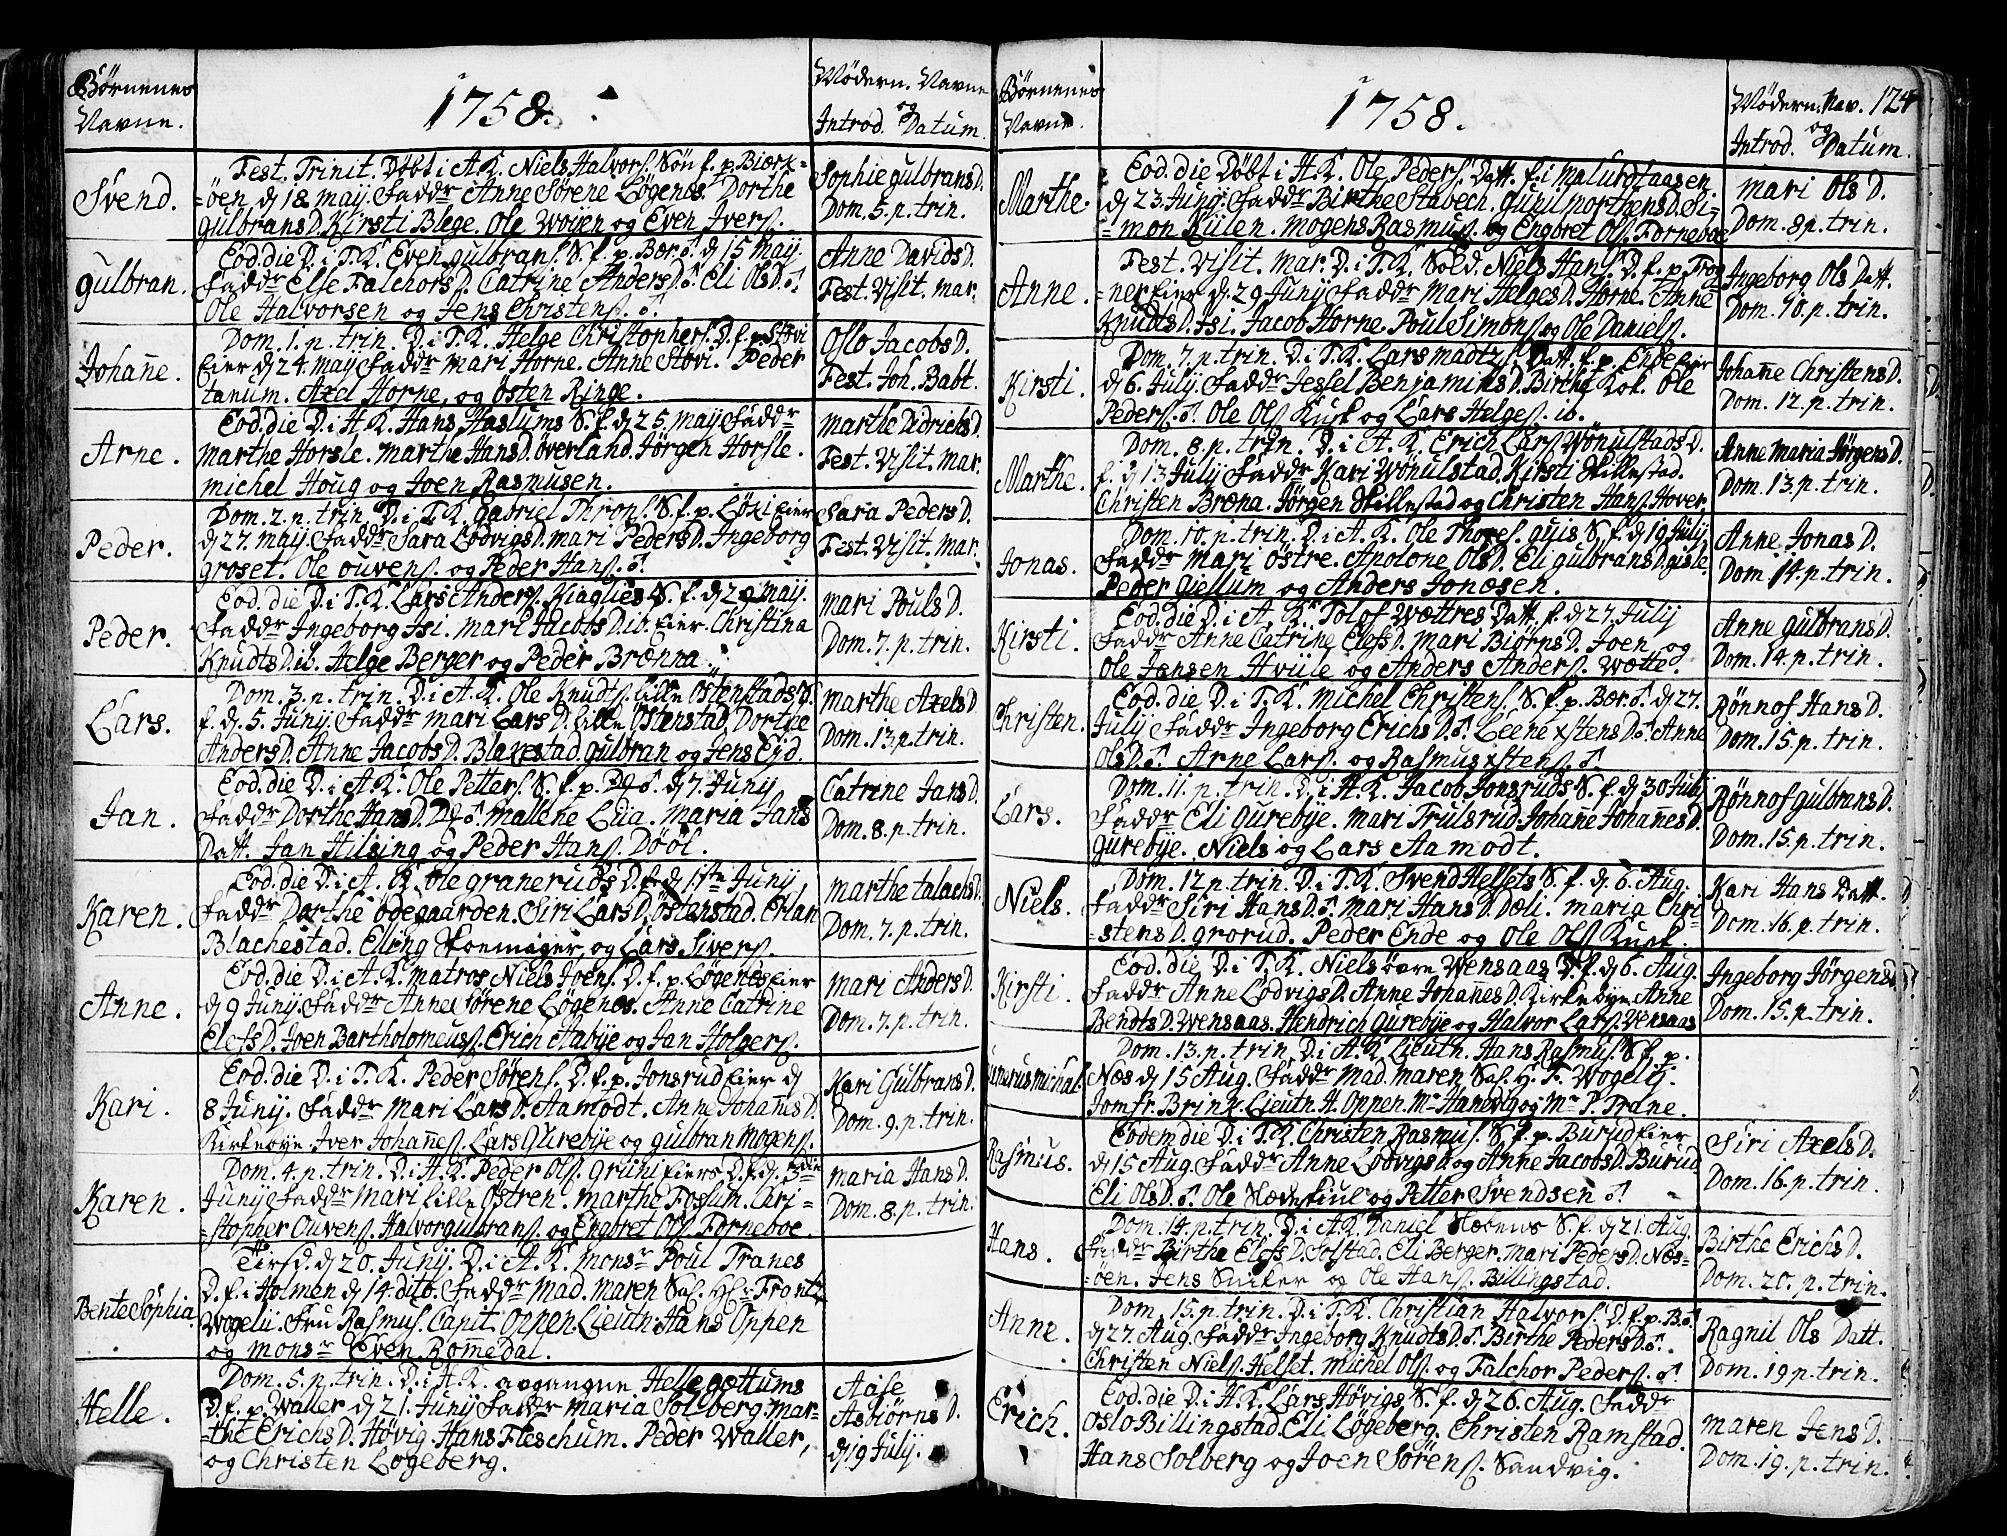 Børnenes
Navne.
1758.
Mödern. Navne
og
Introd. Datum.
Svend.
Fest. Trinit. Döbt i A.K. Niels Halvors. Søn f. p. Biærk-
-öen, d 18 may. Faddr Anne Sørene Løgenes. Dorthe
GulbransD. Kirsti Blege. Ole Woyen og Even Ivers.
Sophie GulbransD.
Dom. 5. p. trin.
Gulbran.
Eod. die D. i T.K. Even Gulbrans. S. f. p. Bær. d 15 May.
Faddr Else FalchorsD. Catrine AndersD. Eli OlsD.
Ole Halvorsen og Jens Christens.
Anne DavidsD.
Fest. Visit. Mar.
Johañe.
Dom. 1. p. trin. D. i T.K. Helge Christophers. D. f. p. Stovi
Eier d 24. may Faddr Mari Horne. Anne Stovi. Peder
tanum. Axel Horne, og Østen Ringe.
Oslo JacobsD.
Fest. Joh. Babt.
Arne.
Eod. die D. i H.K. Hans Haslums S. f. d 25. may Faddr
Marthe Horsle. Marthe HansD. Øverland. Jörgen Horsle.
Michel Houg og Joen Rasmusen.
Marthe DidrichsD.
Fest. Visit. Mar.
Peder.
Dom. 2. p. trin. D. i T.K. Gabriel Throns. S. f. p. Løkieier
d 27. may. Faddr Sara LodvigsD. Mari PedersD. Ingeborg
Groset. Ole Ouvens. og Peder Hans.
Sara PedersD.
Fest. Visit. Mar.
Peder.
Eod. die D. i T.K. Lars Anders. S. f. d 29 may.
Faddr Ingeborg Isi. Mari JacobsD. ib. Eier. Christina
KnudtsD. ib. Helge Berger og Peder Brænna.
Mari PoulsD.
Dom. 7. p. trin.
Lars.
Dom. 3. p. trin. D. i A.K. Ole Knudts. Lille Østenstads S.
f. d. 5. Junij. Faddr Mari LarsD. Lille Østenstad, Dorthe
AndersD. Anne JacobsD. Blakestad. Gulbran og Jens Eyd.
Marthe AxelsD.
Dom. 13. p. trin.
Jan.
Eod. die D. i A.K. Ole Petters. S. f. p. d 7. Junij
Faddr Dorthe HansD. Mallene Lelia. Maria Jans
Datt. Jan Hilsing og Peder Hans. Døøl.
Catrine JansD.
Dom. 8. p. trin.
Karen.
Eod. die D. i A.K. Ole Graneruds D. f. d 1ste Junij
Faddr Dorthe Ødegaarden. Siri LarsD. Østenstad. Erlan
Blachestad. Elling Skoemager, og Lars Sivers.
Marthe TalachsD.
Dom. 7. p. trin.
Anne.
Eod. die D. i A.K. Matros Niels Joens. D. f. p. Løgeneseier
d 9 Junij. Faddr Anne Sørene Løgenes. Anne Catrine
ElefsD. Joen Bartholomeus. Erich Habye og Jan Holgers.
Mari AndersD.
Dom. 7. p. trin.
Kari.
Eod. die D. i T.K. Peder Sørens. D. f. p. Jonsrudeier d
8 Junij. Faddr Mari LarsD. Aamodt. Anne JohañesD.
Kirkebye. Iver Johañes. Lars Gurebye og Gulbran Mogens.
Kari GulbransD.
Dom. 9. p. trin.
Karen.
Dom. 4. p. trin. D. i H.K. Peder Ols. Grinieiers D. f. d. 3die
Junij Faddr Mari Lille Østren. Marthe Foslum. Chri-
-stopher Ouvens. Halvor Gulbrans. og Engbret Ols. Forneboe.
Maria HansD.
Dom. 8. p. trin.
Bente Sophia.
Tirsd. d 20. Junij. D. i A.K. Monsr Poul Tranes
D. f. i Holmen d 14. dito. Faddr Mad. Maren Sal. Hr. Frantz
Wogelii. Fru Rasmus. Capit. Oppen. Lieutn. Hans Oppen
og Monsr Even Romedal.
Helle.
Dom. 5. p. trin. D. i A.K. avgangne Helle Gottums
D. f. p. Waller d 21. Junij Faddr Maria Solberg. Mar-
-the ErichsD. Høvig. Hans Fleschum. Peder Waller,
og Christen Løgeberg.
Aase
AsbiörnsD.
d 9 Julij.
Børnenes
Navne
1758.
Mödern. Nav. 124
og
Introd. Datum.
Marthe.
Eod. die Döbt i H.K. Ole Peders. Datt. f. i Malurdhaasen
d 23. Junij. Faddr Birthe Stabech. Gunil MorthensD. Si-
-mon Kiilen. Mogens Rasmus. og Engbret Ols. Forneboe
Mari OlsD.
Dom. 8 p. trin.
Anne.
Fest. Visit. Mar. D. i T.K. Sold. Niels Hans. D. f. p. Frog
nereier d. 29 Junij Faddr Mari HelgesD. Horne. Anne
KnudtsD. Isi. Jacob Horne. Poul Simons. og Ole Daniels.
Ingeborg Ols Datt.
Dom. 10. p. trin.
Kirsti
Dom. 7. p. trin. D. i T.K. Lars Madtz. Datt. f. p. Endeeier
d 6. Julij. Faddr Jeslel BenjaminsD. Birthe Kok. Ole
Peders. Ole Ols. Kusk og Lars Helges. ib.
Johañe ChristensD.
Dom. 12. p. trin.
Marthe.
Dom. 8. p. trin. D. i A.K. Erich Lars. Wønulstads D.
f. d 13 Julij Faddr Kari Wönulstad. Kirsti Hillestad.
Christen Bræna. Jörgen Hillestad og Christen Hans. Hover.
Anne Maria JörgensD.
Dom. 13. p. trin.
Jonas.
Dom. 10. p. trin. D. i A.K. Ole Thores. Gjis S. f. d 19 Julij
Faddr Mari Østre. Apolone OlsD. Eli GulbransD. Gisle.
Peder Giellum og Anders Jonasen.
Anne JonasD.
Dom. 14. p. trin.
Kirsti.
Eod. die D. i A.K. Tolof Wættres Datt. f. d 27. Julij
Faddr Anne Catrine ElefsD. Mari BiörnsD. Joen og
Ole Jansen Hviile og Anders Anders. Wætte.
Anne GulbransD.
Dom. 14. p. trin.
Christen.
Eod. die D. i T.K. Michel Christens. S. f. p. Bær. d 27.
Julij Faddr Ingeborg ErichsD. Leene XstensD. Anne
OlsD. Arne Lars. og Rasmus Xstens.
Rønnof HansD.
Dom. 15. p. trin.
Lars.
Dom. 11. p. trin. D. i H.K. Jacob Jonsruds S. f. d 30 Julij
Faddr Eli Gurebye. Mari Trulsrud. Johañe JohañesD.
Gurebye. Niels og Lars Aamodt.
Rønnof GulbransD.
Dom. 15. p. trin.
Niels.
Dom. 12 p. trin. D. i T.K. Svend Hellets S. f. d. 6. Aug.
Faddr Siri HansD. Mari HansD. Dæli. Maria Chri-
-stensD. Grorud. Peder Ende og Ole Ols. Kusk.
Kari Hans Datt.
Dom. 16. p. trin.
Kirsti.
Eod. die D. i T.K. Niels Øvre Wensaas D. f. d 6. Aug.
Faddr Anne LodvigsD. Anne JohañesD. Kirkebye. Anne
BendtsD. Wensaas. Hendrich Gurebye og Halvor Lars. Wensaas
Ingeborg JörgensD.
Dom. 15. p. trin.
Dom. 13. p. trin. D. i A.K. Lieutn. Hans Rasmus. S. f. p.
Næs d 15 Aug. Faddr Mad. Maren Sal. H. F. Wogelij.
Jomfr. Brink. Lieutn. H. Oppen. Mr Hanevig og Mr P. Trane.
Rasmus.
Eodem die D. i T.K. Christen Rasmus. S. f. p. Burudeier
d 15 Aug. Faddr Anne LodvigsD. og Anne JacobsD. Burud
Eli OlsD. Ole og Petter Svendsen
Siri AxelsD.
Dom. 16. p. trin.
Hans.
Dom. 14. p. trin. D. i A.K. Daniel S. f. d 21. Aug.
Faddr Birthe ElefsD. Solstad. Eli Berger. Mari PedersD. Næs-
-öen. Jens og Ole Hans. Billingstad.
Birthe ErichsD.
Dom. 20. p. trin.
Anne.
Dom. 15. p. trin. D. i T.K. Christian Halvors. D. f. p. B.
d 27. Aug. Faddr Ingeborg KnudtsD. Birthe PedersD.
Christen Niels. Hellet. Michel Ols. og Falchor Peders.
Ragnil Ols Datt.
Dom. 19 p. trin.
Erich.
Eod. die D. i H.K. Lars Høvigs S. f. d 26. Aug. Faddr
Oslo Billingstad. Eli Løgeberg. Christen Ramstad.
Hans Solberg og Joen Sörens. Sandvig.
Maren JensD.
Dom. 19. p. trin.